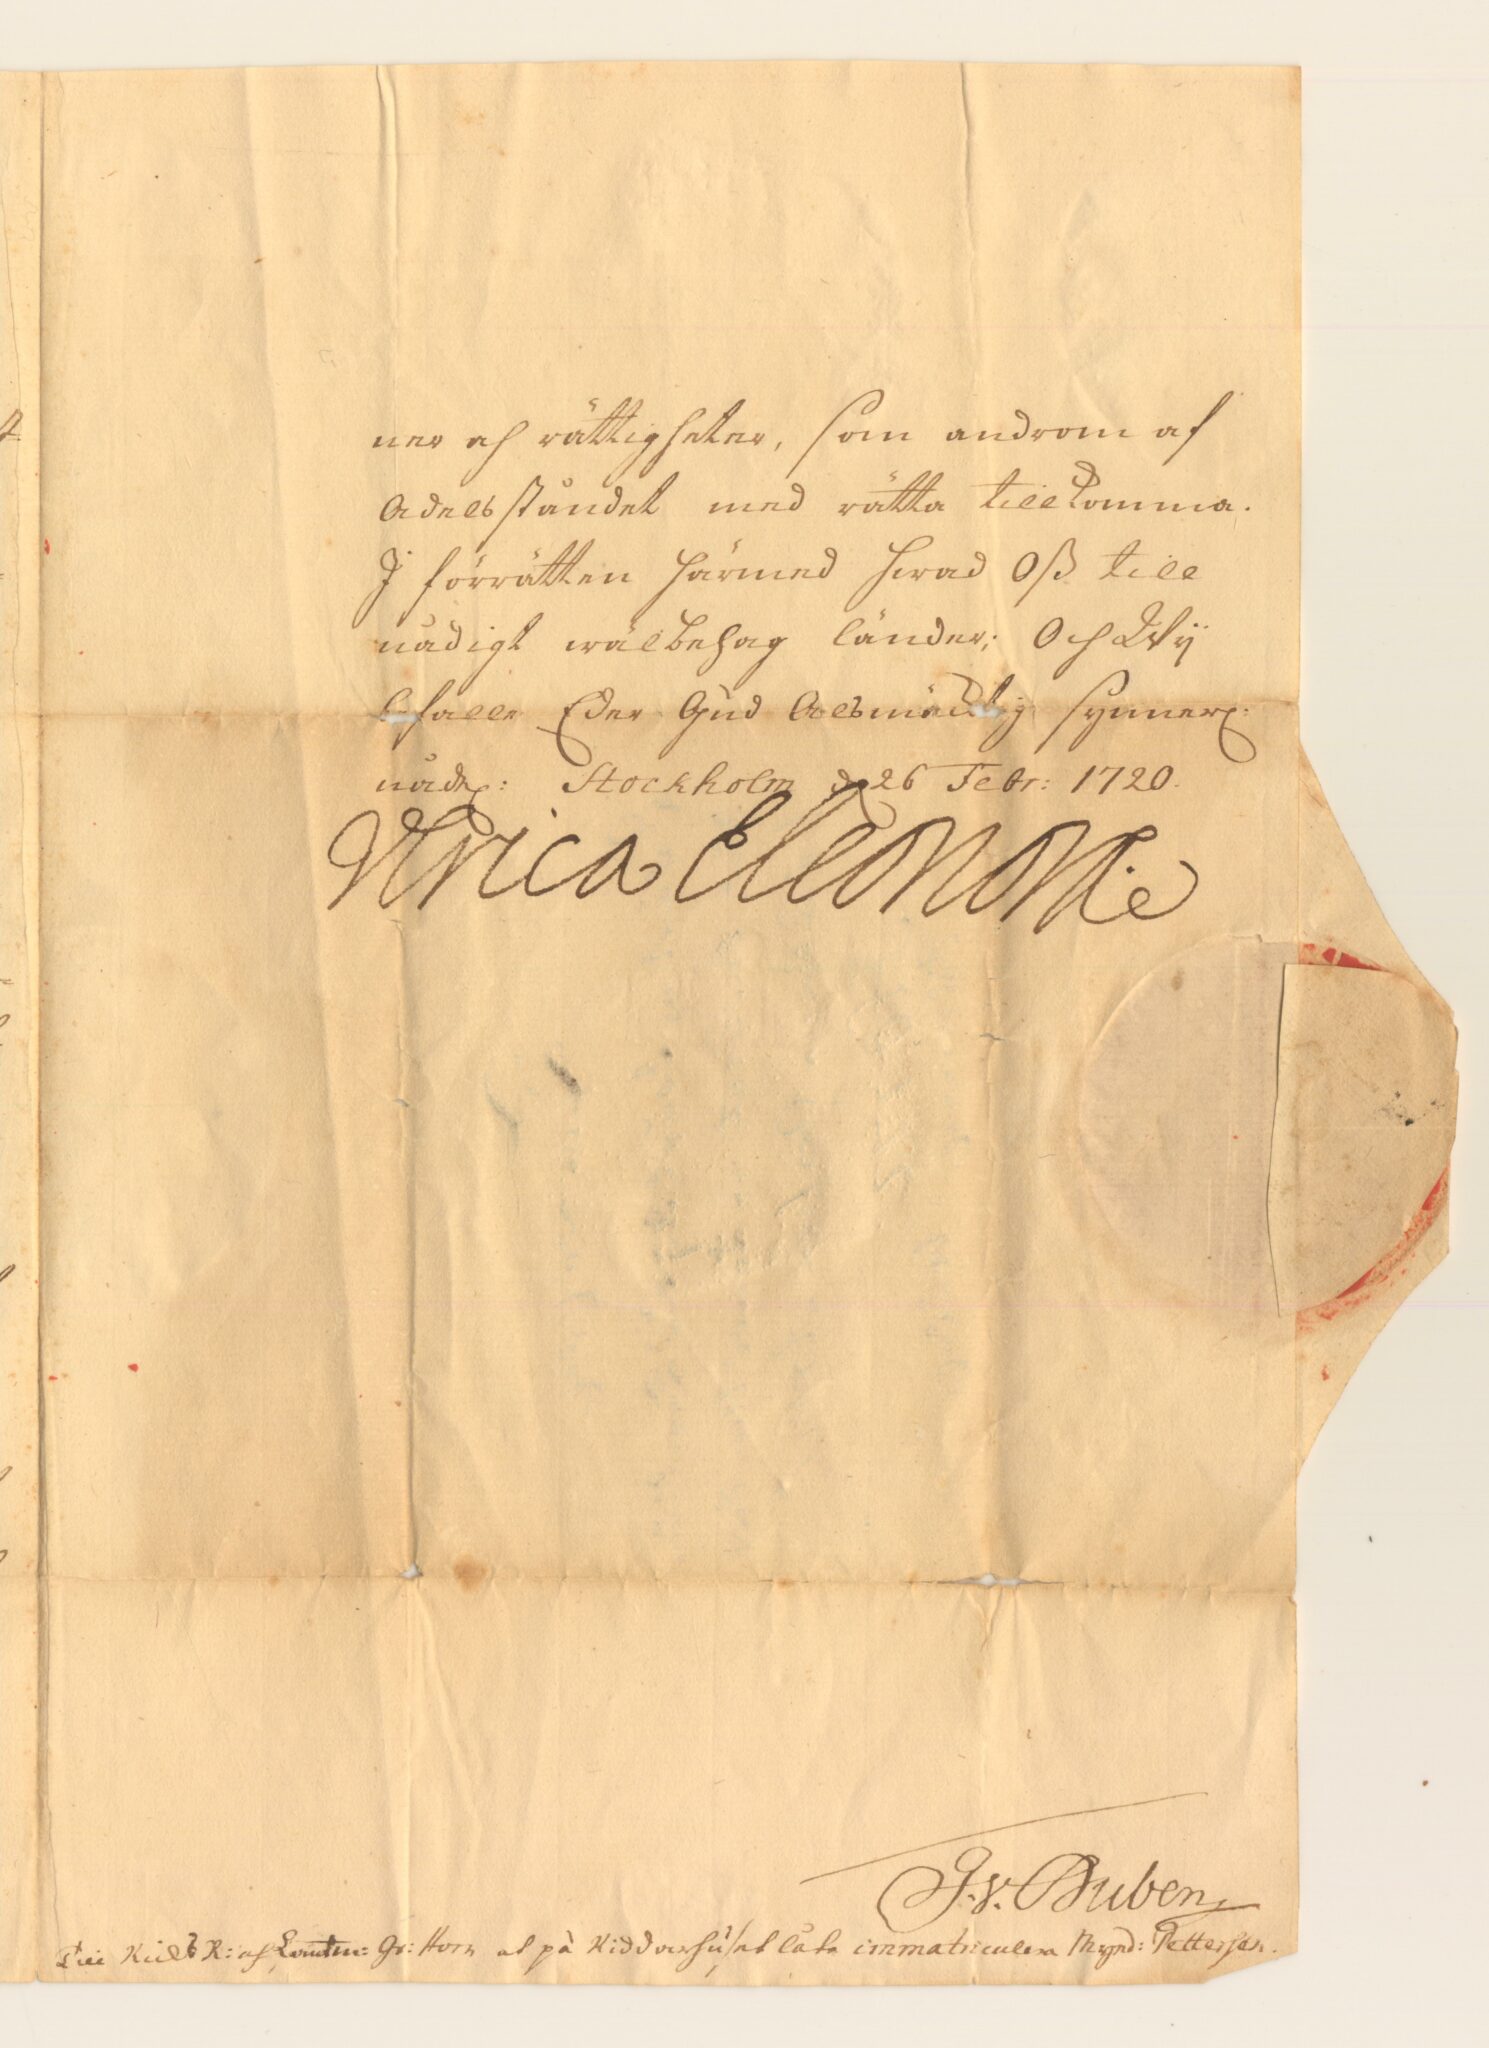 ner och rättigheter, som androm af
Adelsståndet med rätta tillkomma.
J förrätten härmed hwad Oß till
nådigt wälbehag länder; Och Wÿ
befalle Eder Gud Alsmächtig synnerl:
nådel: Stockholm d. 26 Febr: 1720.
Ulrica Eleonora
J. V. Düben
Till Riks R: och Landtm: Gr: Horn at på Riddarhuset låta immatriculera Mynd: Petterson.